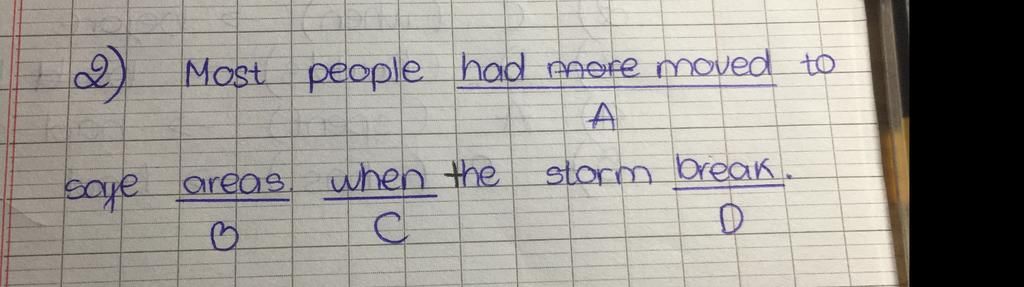 2) Most people had more moved to
A
saye areas when the storm break.
B C D